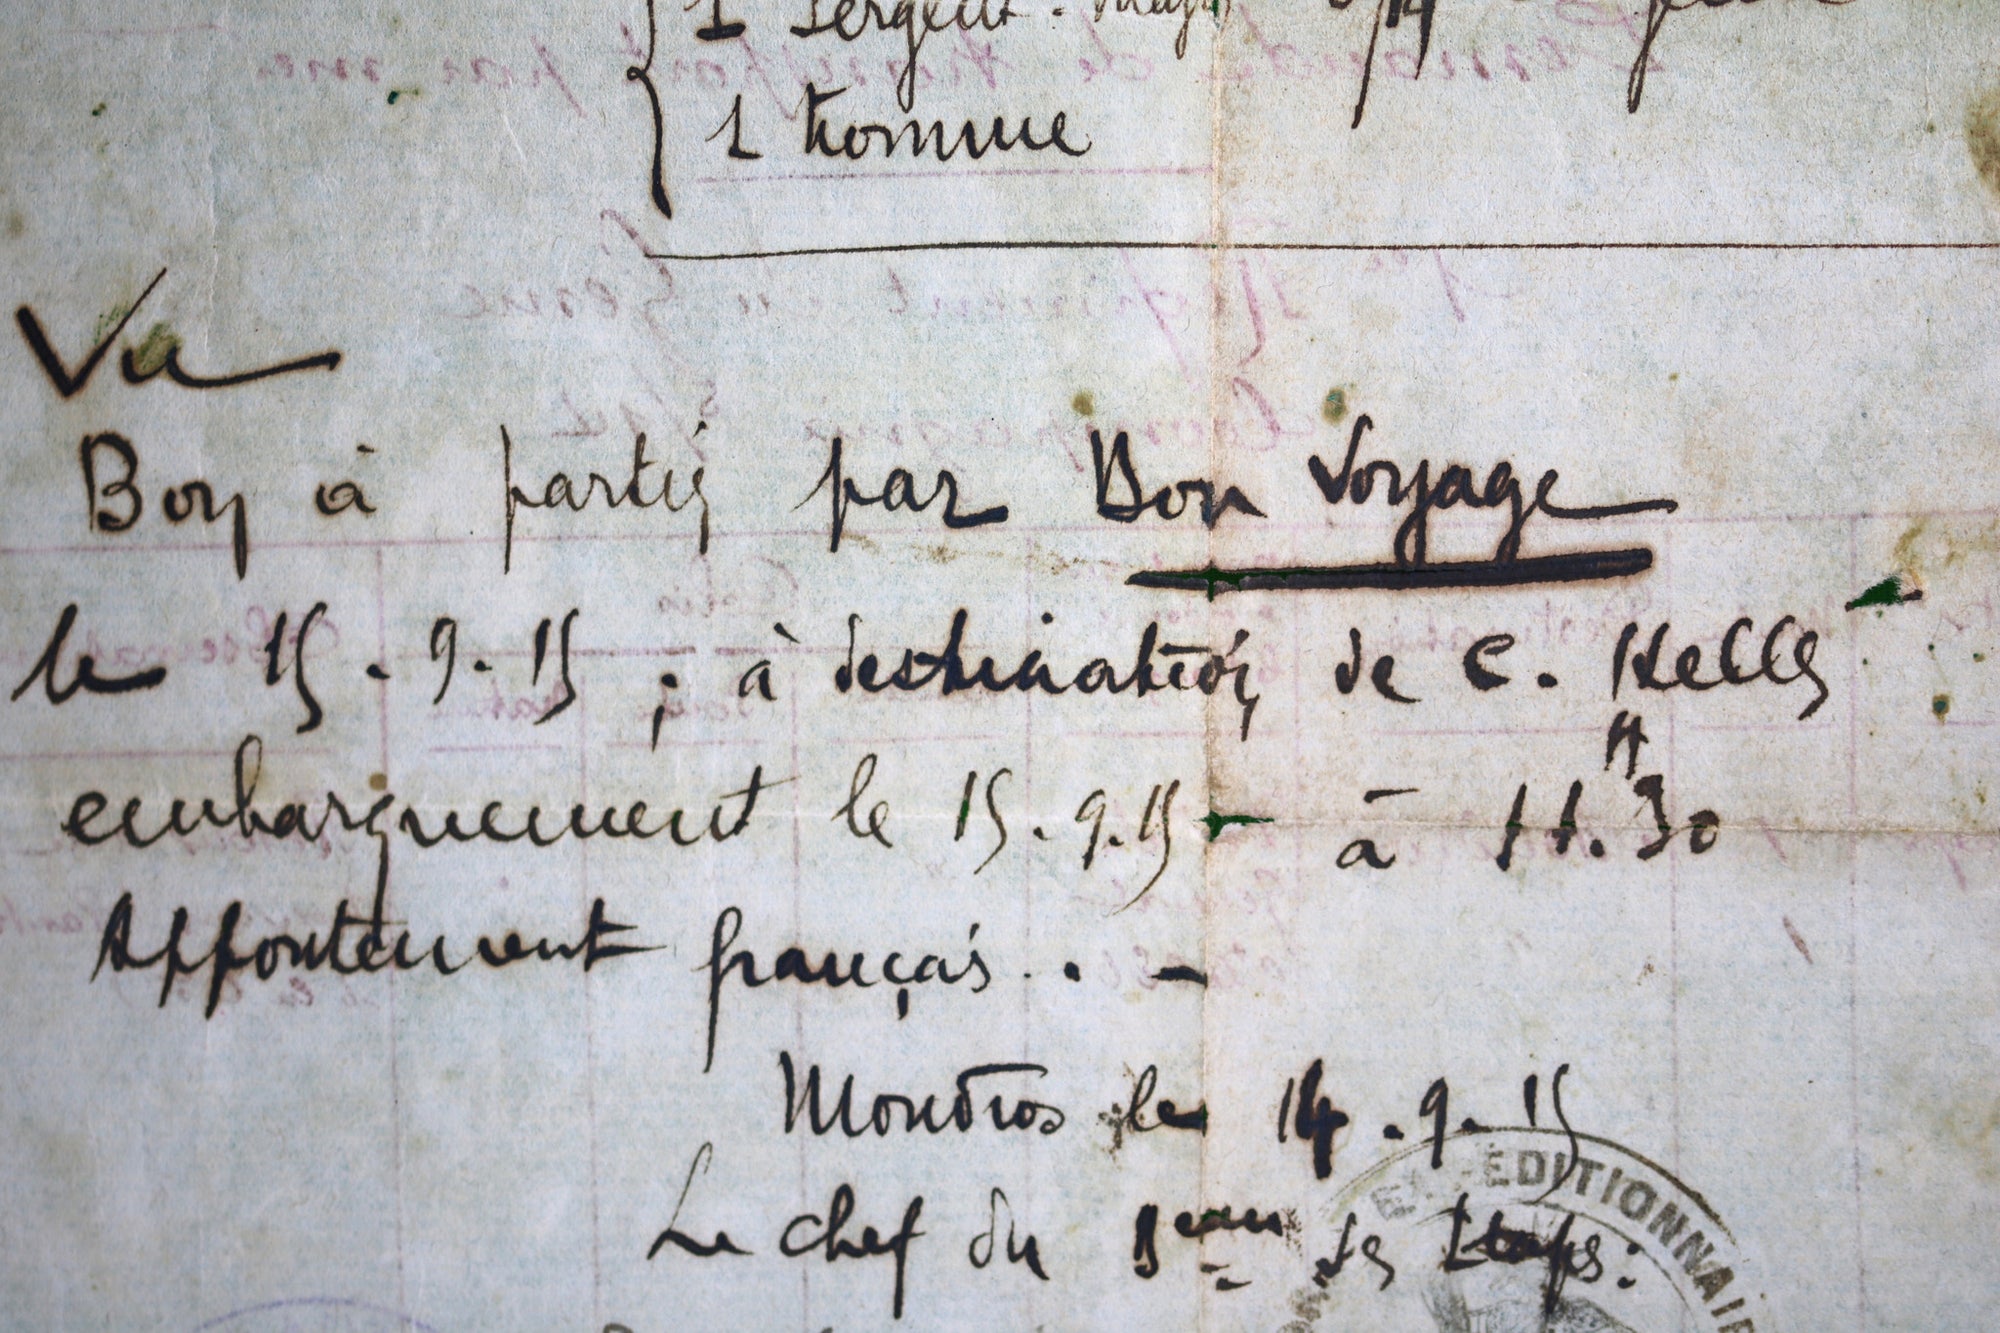 1 Sergent-Major
1 homme
Vu
Bon à partir par Bon Voyage
le 15.9.15, à destination de C. Hellès
embarquement le 15.9.15 - à 11.H30
Appontement français. -
Moudros le 14.9.15
Le chef du Beau des Etapes:
EXPÉDITIONNAIRE